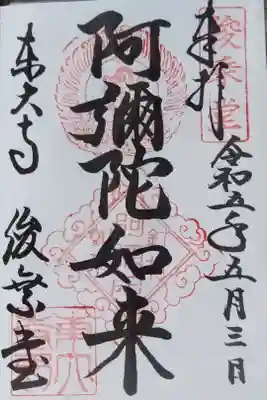 奉拝
俊乗堂
令和五年五月三日
阿彌陀如来
東大寺
俊乗堂